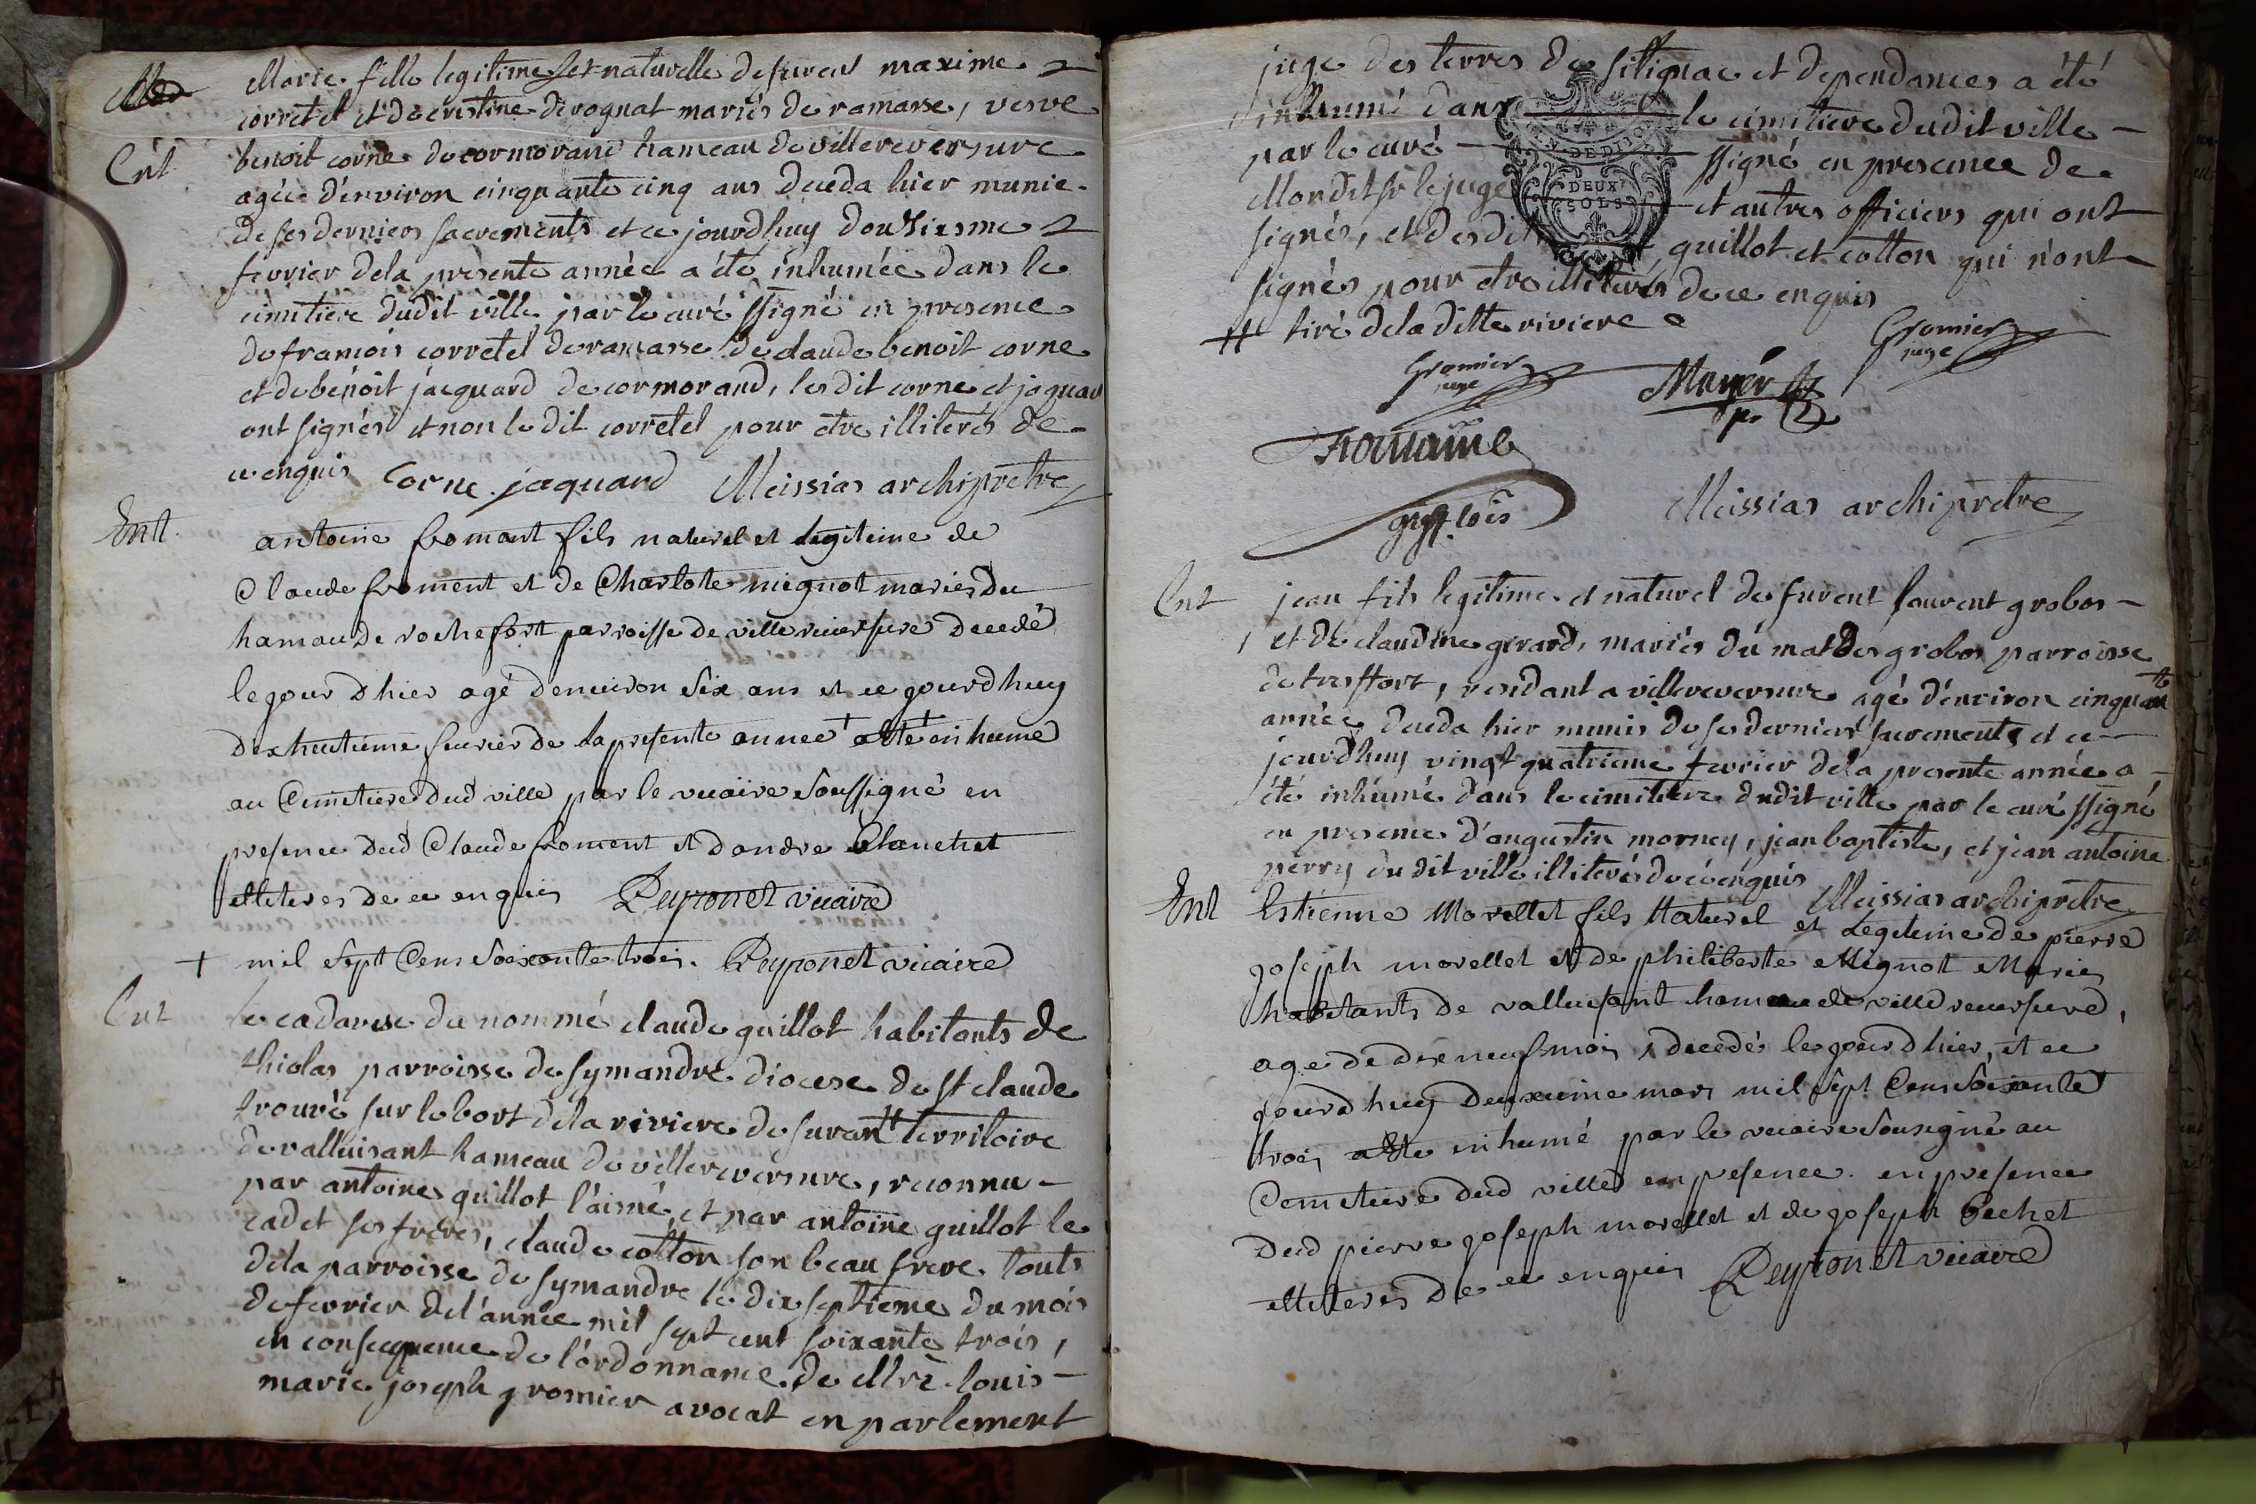 Ent
Marie fille legitime et naturelle de furent maxime
corretel et de cristine derognat mariés de ramasse, vesve
benoit corne de cormorand hameau de villereversure
agée d'environ cinquante cinq ans deceda hier munie
de ses derniers sacrements et ce jourdhuy douziesme
fevrier dela presente année a été inhumée dans le
cimitiere dudit ville par le curé ssigné en presence
de francois corretel de ramasse de claude benoit corne
et de benoit jacquard de cormorand, les dit corne et jaquar
ont signés et non le dit corretel pour etre illiterés de
ce enquis Corne jaquard Meissias archipretre
Ent.
antoine froment fils naturel et legitime de
Claude froment et de Charlote mignot maries du
hamau de rochefort parroisse de villereversure decedé
le jour dhier agé denviron six ans et ce jourdhuy
dixhuitieme fevrier de la presente annee + a été inhumé
au Cimetiere dud ville par le vicaire soussigné en
presence dud Claude froment et dandre Blanchet
illiteres de ce enquis Peyronet vicaire
+ mil sept Cens soixante trois. Peyronet vicaire
Ent
le cadavre du nommé claude guillot habitants de
thiolas parroisse de symandre diocese de st claude
trouvé sur le bort dela riviere de surant # territoire
de valluisant hameau de villereversure, reconnu
par antoine guillot l'ainé, et par antoine guillot le
cadet ses freres, claude cotton son beau frere touts
dela parroisse de symandre le dix septieme du mois
de fevrier de l'année mil sept cent soixante trois,
en consequence de l'ordonnance de Mre louis
marie joseph gromier avocat en parlement
juge des terres de silignac et dependances a été
inhumé dans le cimitiere dudit ville
par le curé ssigné en presence de
Mondit sr le juge et autres officiers qui ont
signés, et desdit guillot et cotton qui n'ont
signés pour etre illiterés de ce enquis
# tiré dela ditte riviere
DEUX
SOLS
Gromier
juge
Gromier
juge
Mayer
Meissias archipretre
Ent
jean fils legitime et naturel de furent laurent grobos
et de claudine gerard, mariés du mas des grobos parroisse
de tresffort, resident a villereversure agé d'environ cinquante
année deceda hier munis de ses derniers sacrements et ce
jourdhuy vingt quatrieme fevrier dela presente année a
été inhumé dans le cimitiere dudit ville par le curé ssigné
en presence d'augustin mornay, jean baptiste, et jean antoine
perry du dit ville illiterés de ce enquis Meissias archipretre
Ent
Estienne Morellet fils Naturel et Legitime de pierre
joseph morellet et de philiberte Mignott Maries
habitants de valluisant hameau de villereversure,
age de dixneuf mois decedés le jour dhier, et ce
jourdhuy deuxieme mars mil sept Cens soixante
trois a été inhumé par le vicaire sousigné au
Cemetiere dud ville en presence. en presence
dud pierre joseph morellet et de joseph Pechet
illiteres de ce enquis Peyronet vicaire